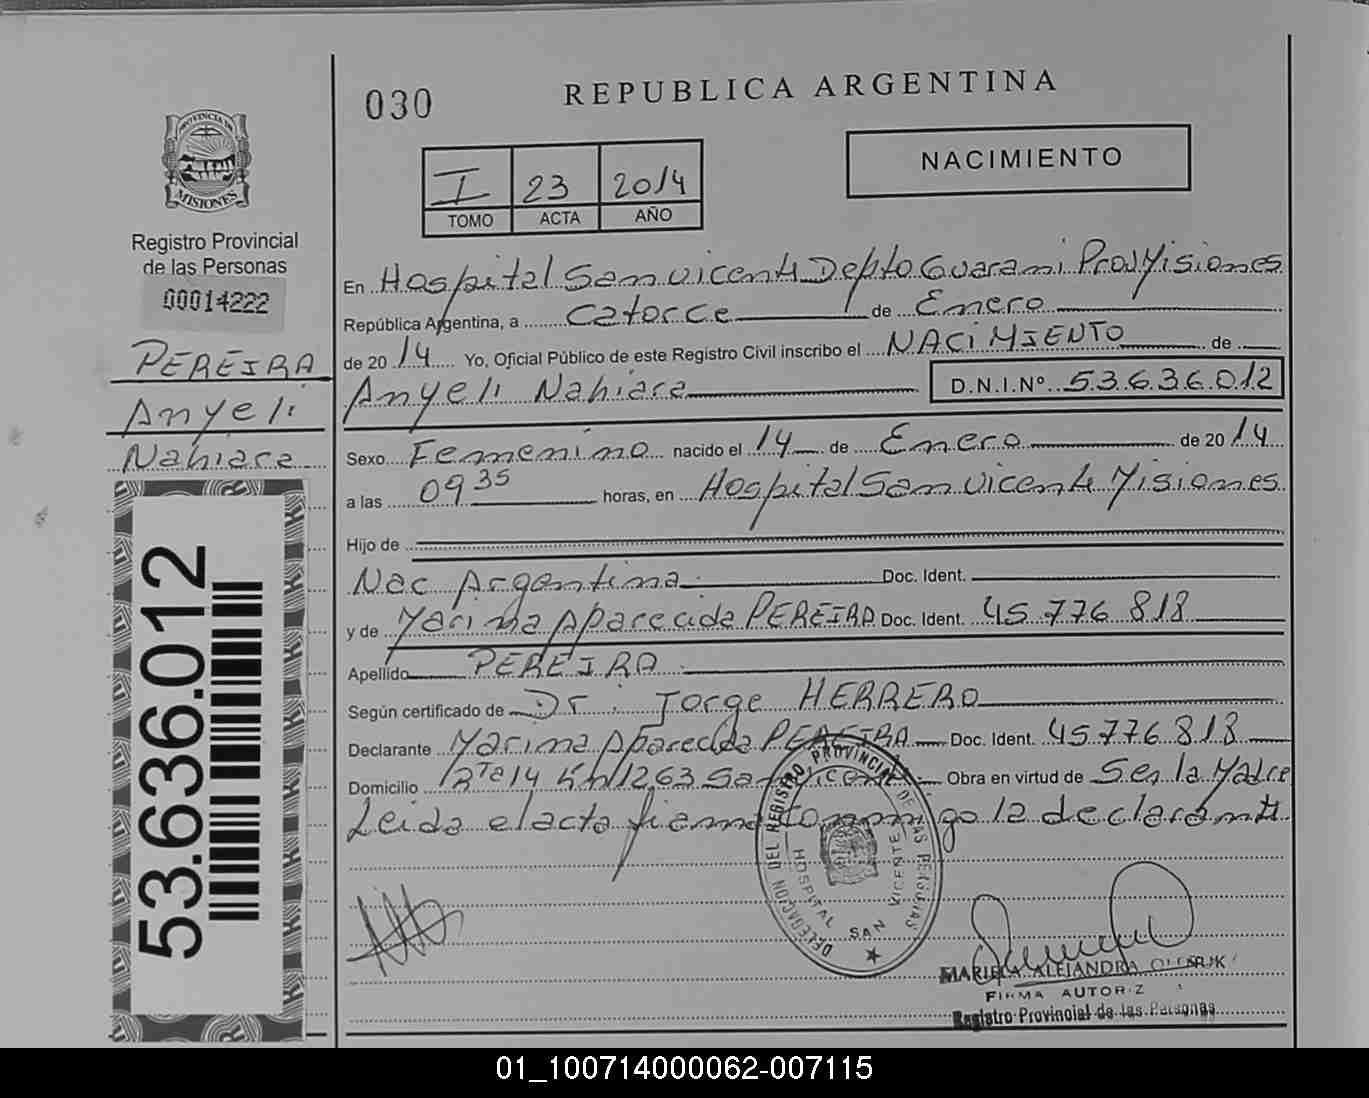 030
REPUBLICA ARGENTINA
PROVINCIA DE
MISIONES
Registro Provincial
de las Personas
00014222
PEREIRA
Anyeli
Nahiara
53.636.012
I 23 2014
TOMO ACTA AÑO
NACIMIENTO
En Hospital San vicente Depto Guarani Prov Misiones
República Argentina, a Catorce de Enero
de 20 14 Yo, Oficial Público de este Registro Civil inscribo el NACiMIENTO de
Anyeli Nahiara
D.N.I.Nº 53.636.012
Sexo Femenino nacido el 14 de Enero de 20 14
a las 09 35 horas, en Hospital San vicente Misiones
Hijo de
Nac Argentina Doc. Ident.
y de Marima Aparecida PEREIRA Doc. Ident. 45.776.818
Apellido PEREIRA
Según certificado de Dr. Jorge HERRERO
Declarante Marima Aparecida PEREIRA Doc. Ident. 45.776.818
Domicilio Rta 14 Km 1263 San Vicente Obra en virtud de Ser la Madre
Leida el acta firma conmigo la declarante
DELEGACION DEL REGISTRO PROVINCIAL DE LAS PERSONAS
HOSPITAL SAN VICENTE
MARIELA ALEJANDRA
FIRMA AUTORIZ
Registro Provincial de las Personas
01_100714000062-007115